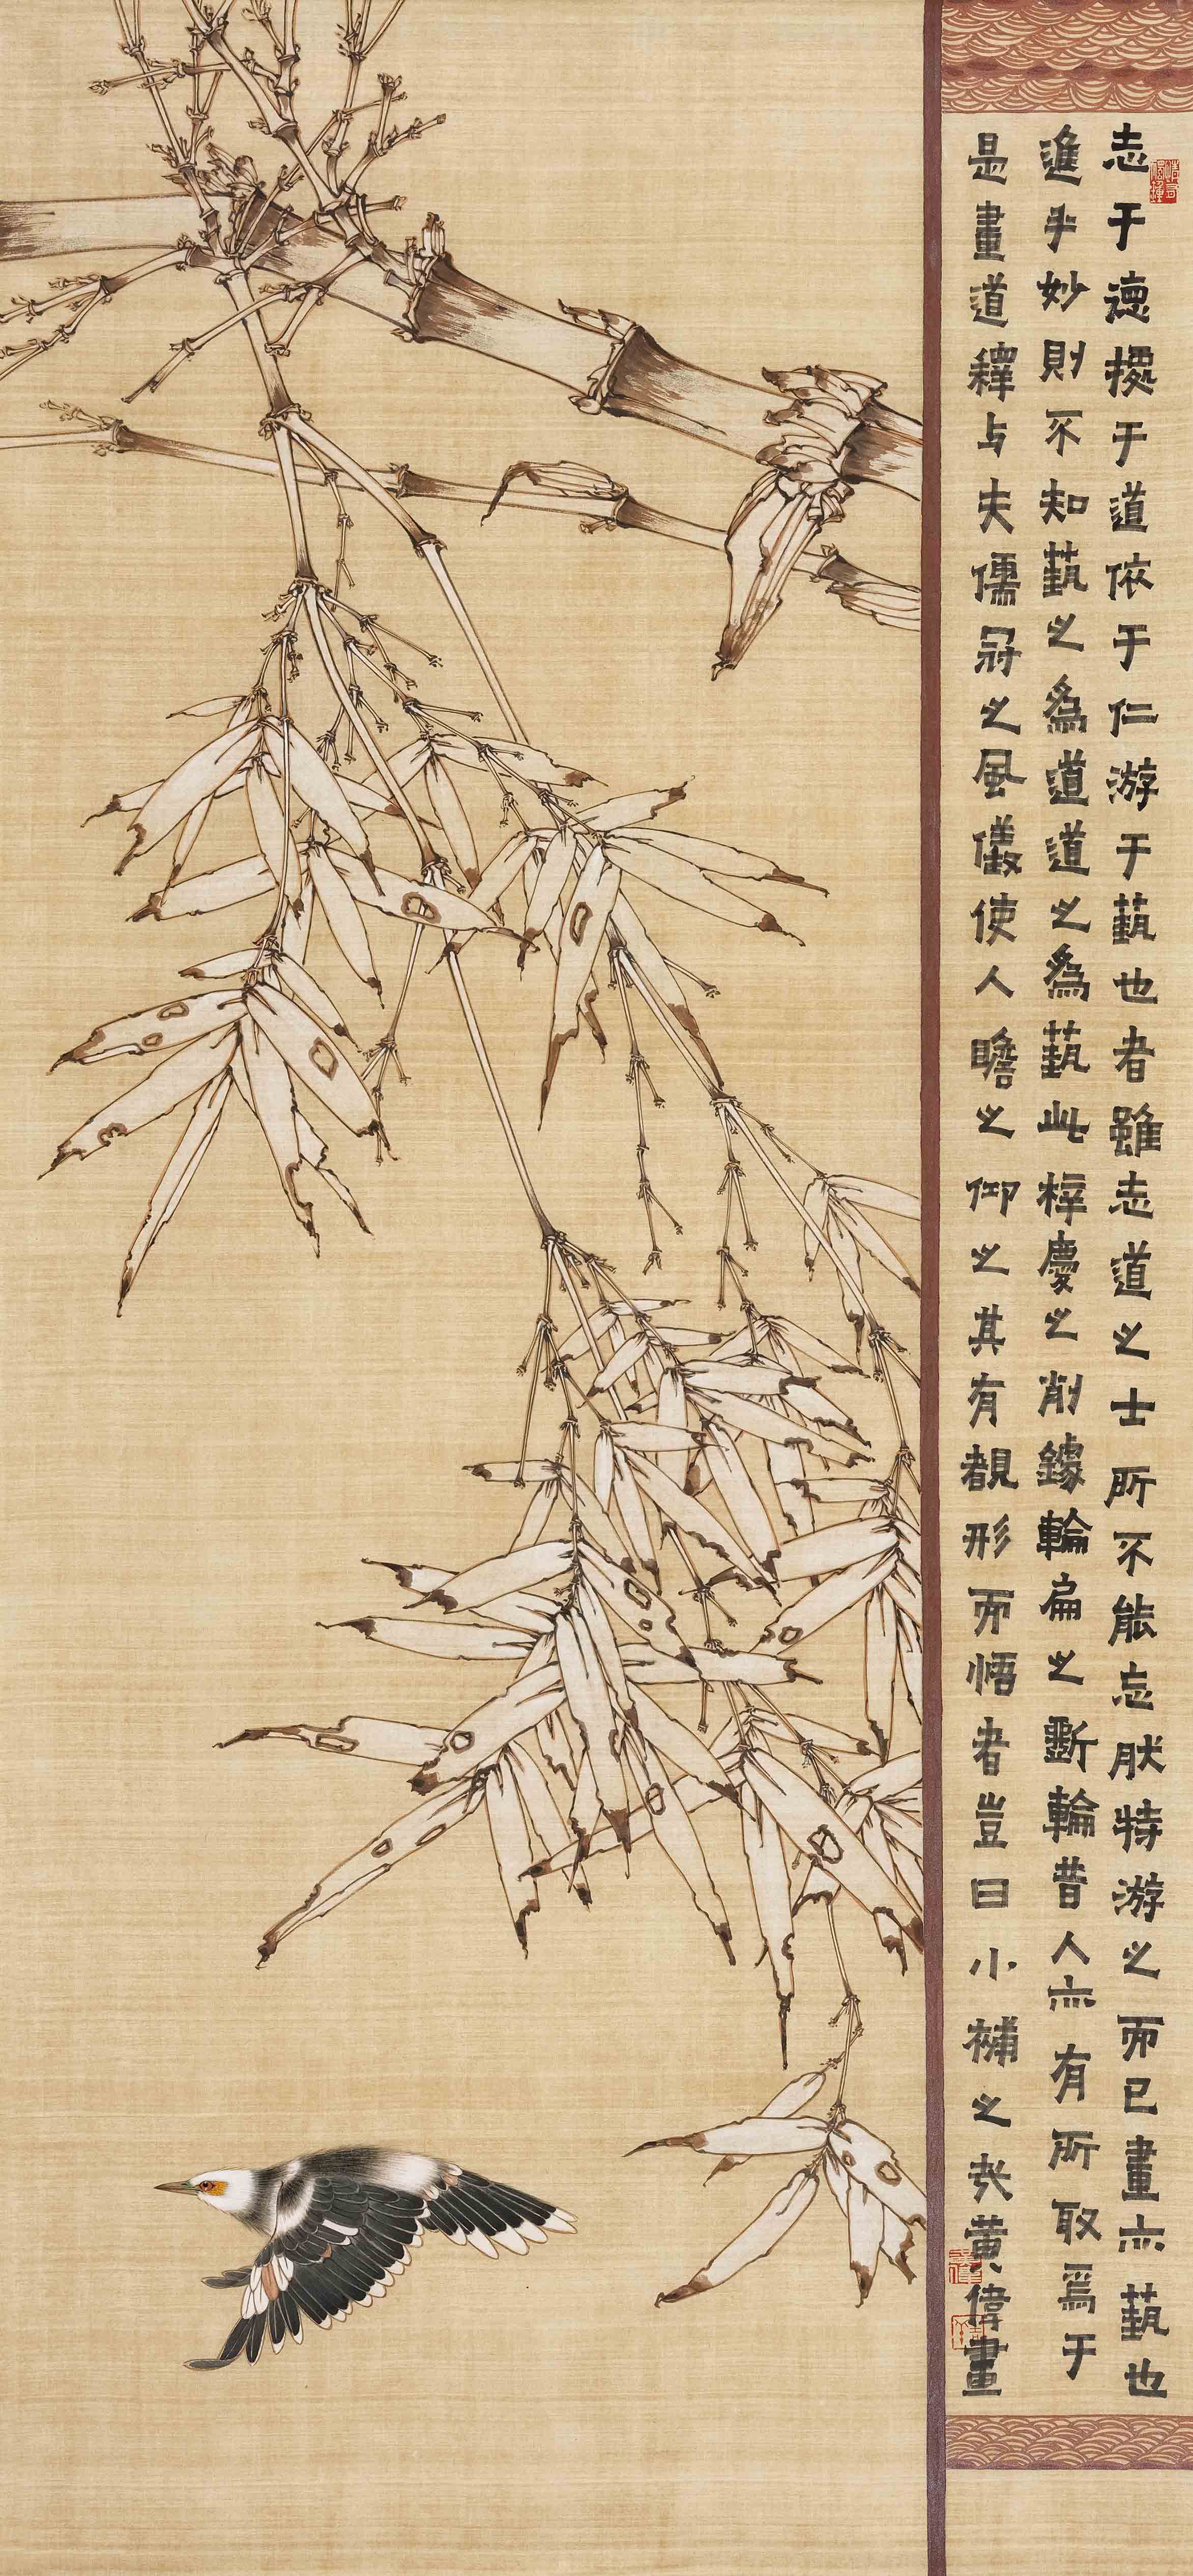 志于德據于道依于仁游于藝也者雖志道之士所不能忘肰特游之而已畫亦藝也
進乎妙則不知藝之為道道之為藝此梓慶之削鐻輪扁之斲輪昔人亦有所取焉于
是畫道釋与夫儒冠之風儀使人瞻之仰之其有覩形而悟者豈曰小補之㢤黄偉畫